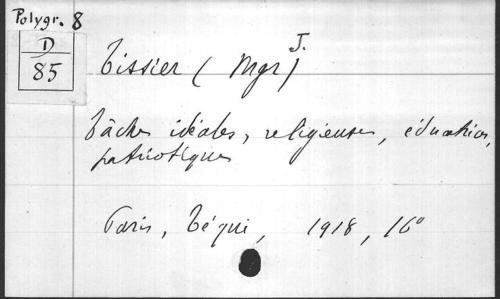 Polygr. 8
D
85
Tissier (Mgr) J.
Tâches idéales, religieuses, éducatives,
patriotiques
Paris, Téqui, 1918, 16°